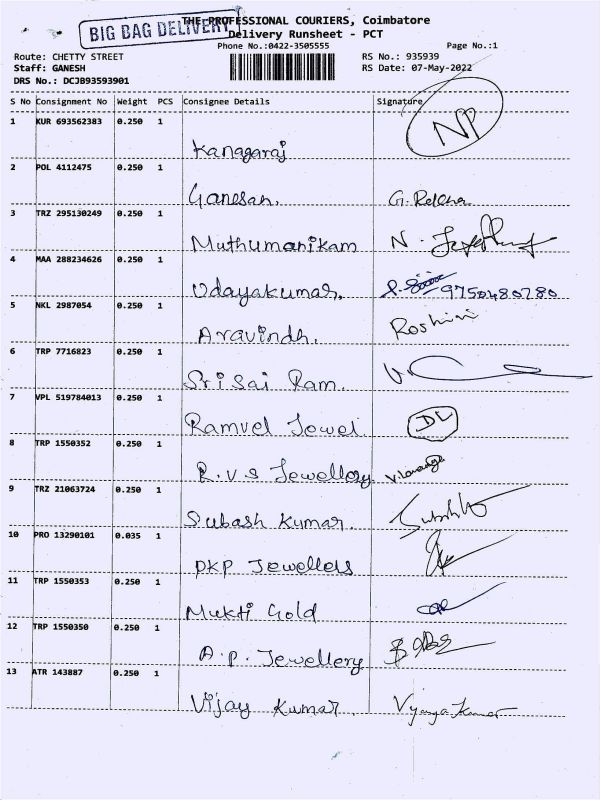 BIG BAG DELIVERY
THE PROFESSIONAL COURIERS, Coimbatore
Delivery Runsheet - PCT
Phone No.:0422-3505555 Page No.:1
Route: CHETTY STREET RS No.: 935939
Staff: GANESH RS Date: 07-May-2022
DRS No.: DCJB93593901
S No Consignment No Weight PCS Consignee Details Signature
1 KUR 693562383 0.250 1
Kanagaraj NP
2 POL 4112475 0.250 1
Ganesan. G. Rekha
3 TRZ 295130249 0.250 1
Muthumanikam N.
4 MAA 288234626 0.250 1
Udayakumar. 9750480780
5 NKL 2987054 0.250 1
Aravindh. Roshini
6 TRP 7716823 0.250 1
Sri Sai Ram.
7 VPL 519784013 0.250 1
Ramvel Jewel DL
8 TRP 1550352 0.250 1
R.V.S Jewellery
9 TRZ 21063724 0.250 1
Subash Kumar.
10 PRO 13290101 0.035 1
PKP Jewellers
11 TRP 1550353 0.250 1
Mukti Gold
12 TRP 1550350 0.250 1
A.P. Jewellery
13 ATR 143887 0.250 1
Vijay Kumar. Vijaya Kumar